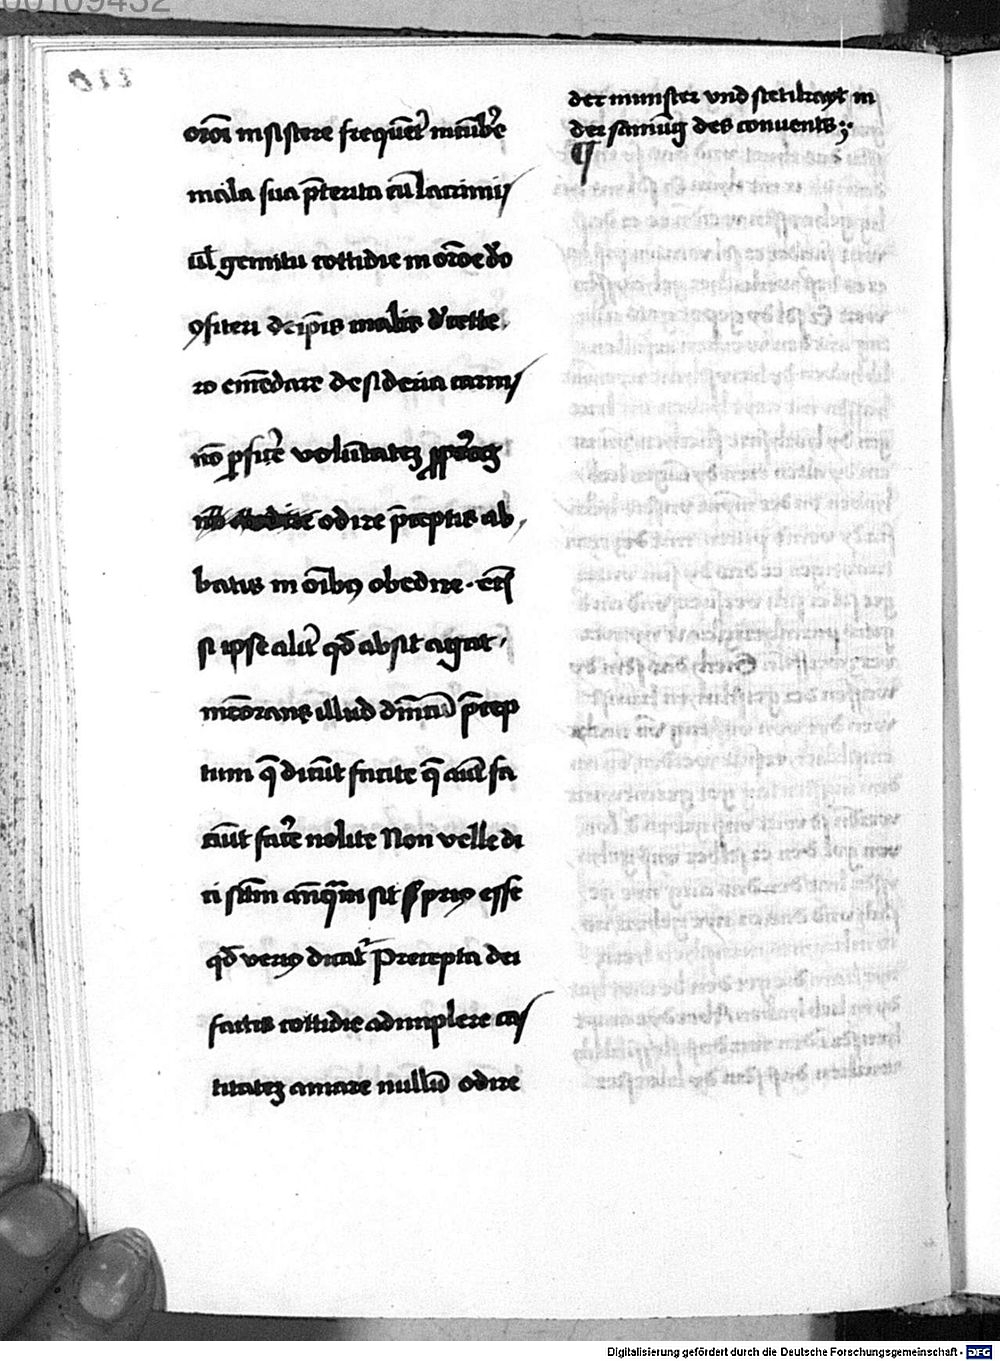 00109432
oro͞i insistere freque͞ter incu͞be
mala sua p͞terita cu͞ lacrimis
ul͞ gemitu cottidie in oro͞e deo
ꝯfiteri de ip͞is malis de cette
ro eme͞dare desideria carnis
no͞ ꝑficere volu͞tatez propriaz
odire p͞ceptis ab
batis in oi͞bꝰ obedire · eciam
si ipse aliter qd͞ absit agat
me͞orans illud dn͞icu͞ p͞cep
tum q͞ dicu͞t facite q͞ aut͞ fa
ciu͞t facere nolite Non velle di
ci sc͞tm an͞qua͞m sit s; prius esse
qd͞ verius dicat͞ Precepta dei
factis cottidie adimplere cas
titatez amare nullu͞ odire
der munster vnd stetikayt in
der samu͞g des conuents
¶
Digitalisierung gefördert durch die Deutsche Forschungsgemeinschaft - DFG